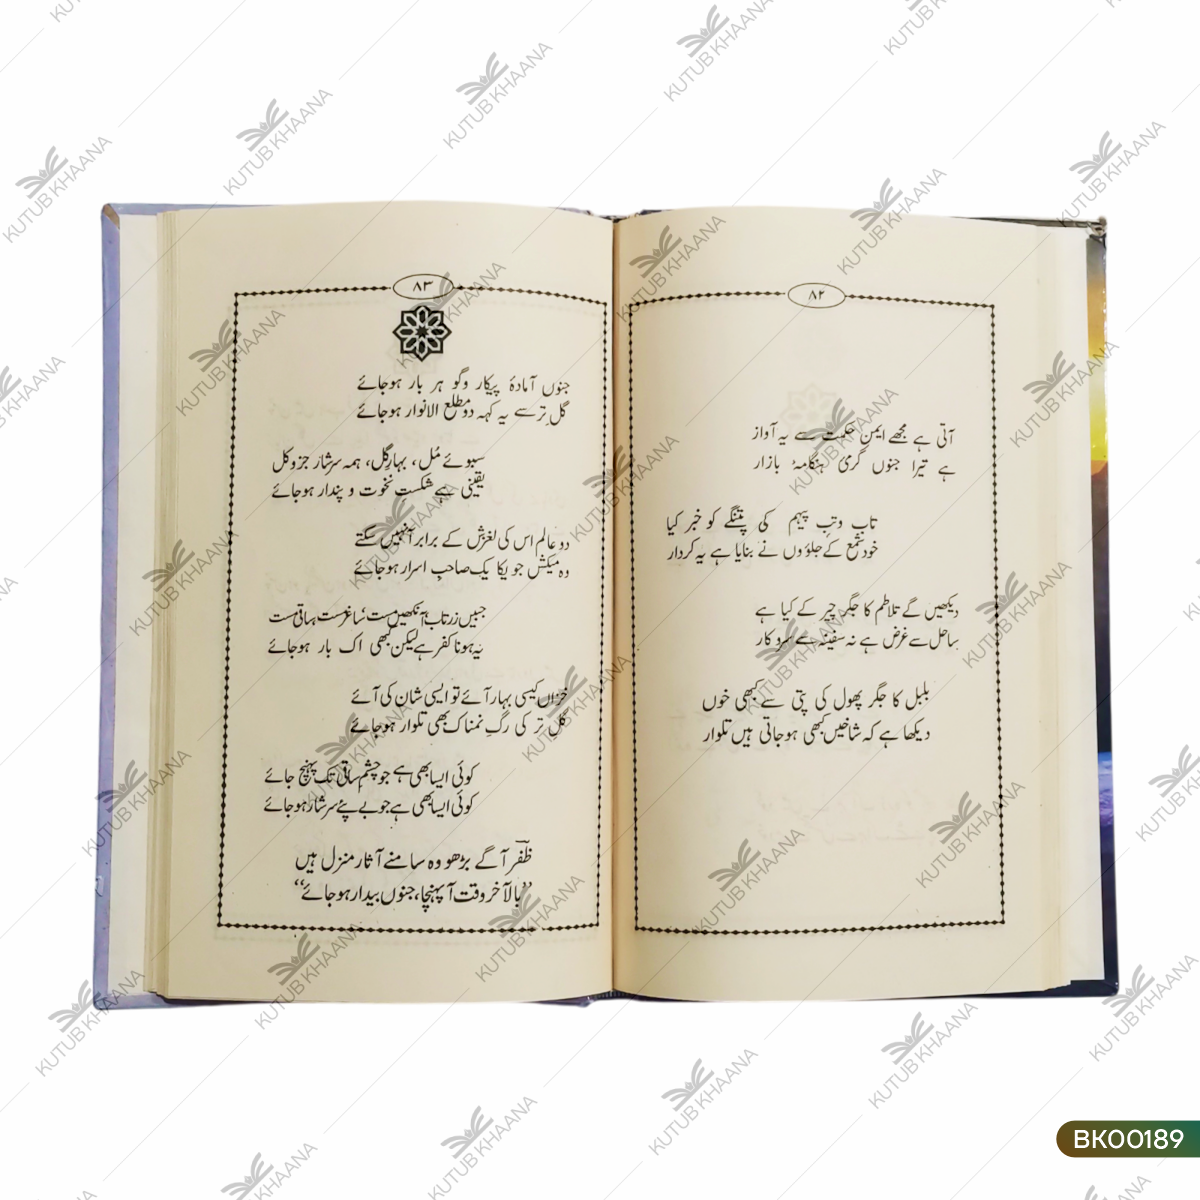 ۸۲
آتی ہے مجھے ایمن حکمت سے یہ آواز
ہے تیرا جنوں گرمیٔ ہنگامۂ بازار
تاب وتبِ پیہم کی پتنگے کو خبر کیا
خود شمع کے جلوؤں نے بنایا ہے یہ کردار
دیکھیں گے تلاطم کا جگر چیر کے کیا ہے
ساحل سے غرض ہے نہ سفینہ سے سروکار
بلبل کا جگر پھول کی پتی سے کبھی خوں
دیکھا ہے کہ شاخیں کبھی ہوجاتی ہیں تلوار
۸۳
جنوں آمادۂ پیکار وگو ہر بار ہوجائے
گلِ تر سے یہ کہہ دو مطلع الانوار ہوجائے
سبوئے مُل، بہارِ گل، ہمہ سرشار جزوکل
یقینی ہے شکستِ نخوت و پندار ہوجائے
دو عالم اس کی لغزش کے برابر آ نہیں سکتے
وہ میکش جو یکا یک صاحبِ اسرار ہوجائے
جبیں زرتاب آنکھیں مست، ساغر مست، ساقی مست
یہ ہونا کفر ہے لیکن کبھی اک بار ہوجائے
خزاں کیسی بہار آئے تو ایسی شان کی آئے
گلِ تر کی رگِ نمناک بھی تلوار ہوجائے
کوئی ایسا بھی ہے جو چشمِ ساقی تک پہنچ جائے
کوئی ایسا بھی ہے جو بے پئے سرشار ہوجائے
ظفر آگے بڑھو وہ سامنے آثارِ منزل ہیں
”بالآخر وقت آ پہنچا، جنوں بیدار ہوجائے“
KUTUB KHAANA
BK00189